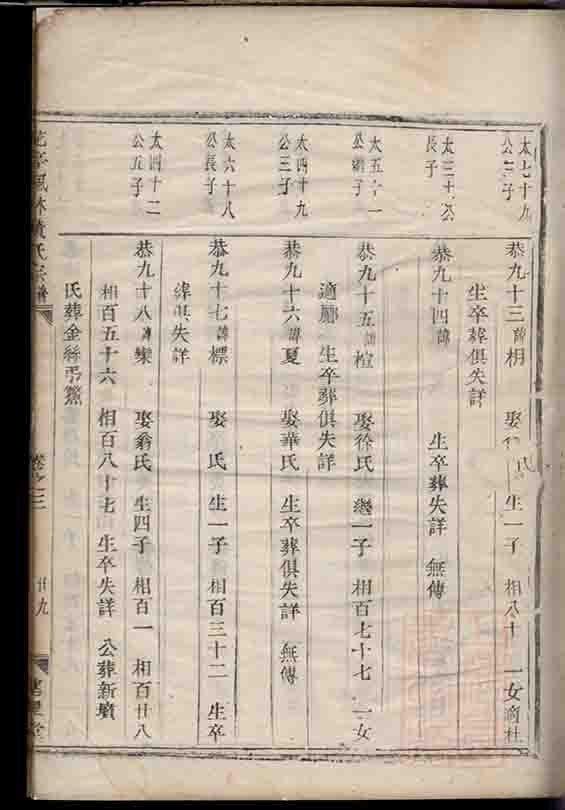 太七十九
公三子
恭九十三諱相 娶 氏 生一子 相八十 一女適杜
生卒葬俱失詳
長子
恭九十四諱 生卒葬失詳 無傳
太五十一
公 子
恭九十五諱楦 娶徐氏 繼一子 相百七十七 一女
適鄺 生卒葬俱失詳
太四十九
公三子
恭九十六諱夏 娶華氏 生卒葬俱失詳 無傳
太六十八
公長子
恭九十七諱標 娶 氏 生一子 相百三十二 生卒
葬俱失詳
太四十二
公五子
恭九十八諱欒 娶翁氏 生四子 相百一 相百廿八
相百五十六 相百八十七 生卒失詳 公葬新墳
氏葬金絲弔鱉
林黃氏宗譜
卷之三
廿九